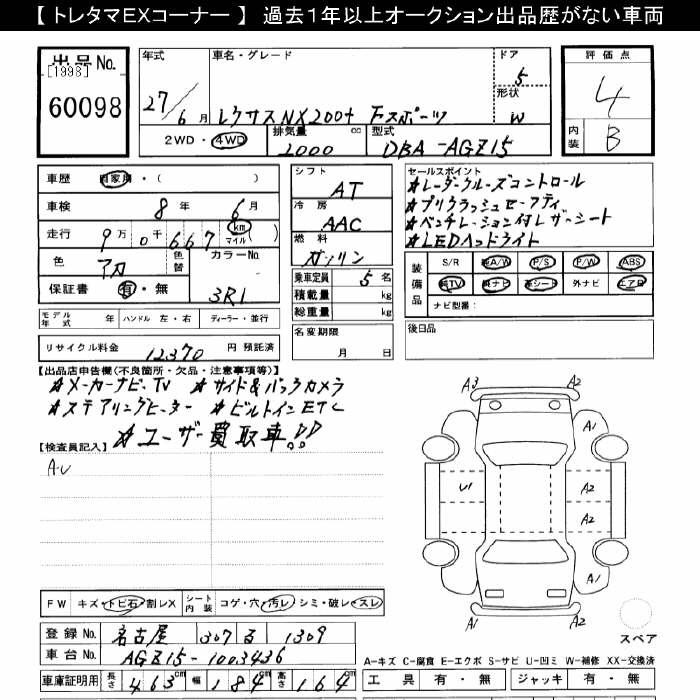 【 トレタマEXコーナー 】 過去1年以上オークション出品歴がない車両
出品No.
[1998]
60098
年式 車名・グレード ドア 5
27/6月 レクサスNX200t Fスポーツ 形状 W
2WD・4WD 排気量 2000 cc 型式 DBA-AGZ15
評価点
4
内装 B
車歴 自家用・( )
車検 8年 6月
走行 9万0千667 km マイル ( )
色 アカ 色替 カラーNo. 3R1
保証書 有・無
モデル年式 年 ハンドル 左・右 ディーラー・並行
リサイクル料金 12,370 円 預託済
シフト AT
冷房 AAC
燃料 ガソリン
乗車定員 5 名
積載量 kg
総重量 kg
名変期限 月 日
セールスポイント
☆レーダークルーズコントロール
☆プリクラッシュセーフティ
☆ベンチレーション付レザーシート
☆LEDヘッドライト
装備品 S/R 純A/W P/S P/W ABS
純TV 純ナビ 革シート 外ナビ エアB
ナビ型番:
後日品
【出品店申告欄(不良箇所・欠品・注意事項等)】
☆メーカーナビ・TV ☆サイド&バックカメラ
☆ステアリングヒーター ☆ビルトインETC
☆ユーザー買取車!!
【検査員記入】
A・U
FW キズ・トビ石・割レX シート内装 コゲ・穴・汚レ・シミ・破レ・スレ
登録No. 名古屋 307 る 1309
車台No. AGZ15-1003436
車庫証明用 長さ 463 cm 幅 184 cm 高さ 164 cm
A3 A2
A1
U1 A2
A2
A1
A1 A2
スペア
A-キズ C-腐食 E-エクボ S-サビ U-凹ミ W-補修 XX-交換済
工具 有・無 ジャッキ 有・無